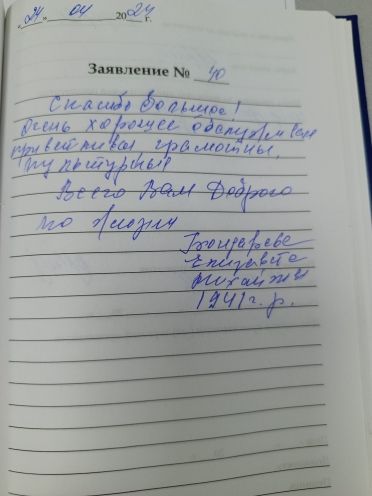 „24" 04 2024 г.
Заявление № 40
Спасибо большое!
Очень хорошее обслуживание
приветливы, грамотны,
культурные
Всего Вам Доброго
по жизни
Бондарева
Елизавета
1941 г. р.